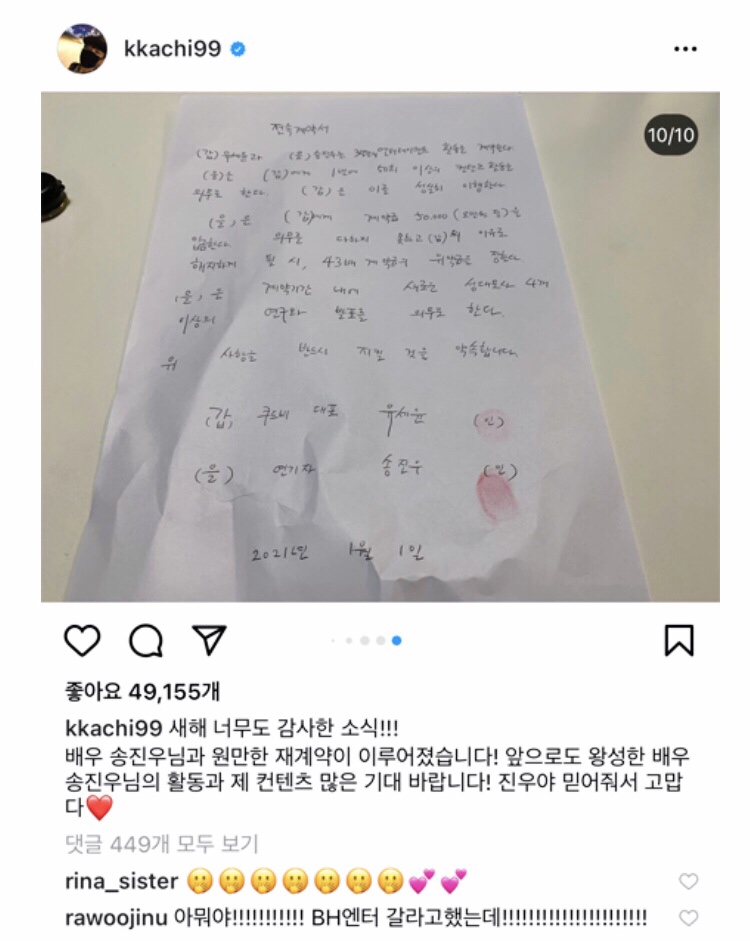 kkachi99
10/10
전속계약서
(갑) 유세윤과 (을) 송진우는 활동을 계약한다.
(을)은 (갑)에게 1년에 50회 이상의 컨텐츠 활동을
의무로 한다. (갑)은 이를 성실히 이행한다.
(을)은 (갑)에게 계약금 50,000 (오만원 정)을
입금한다. 의무를 다하지 못하고 (갑)의 이유로
해지하게 될 시, 43배 계약금의 위약금을 정한다.
(을)은 계약기간 내에 새로운 성대모사 4개
이상의 연구와 발표를 의무로 한다.
위 사항을 반드시 지킬 것을 약속합니다.
(갑) 대표 유세윤 (인)
(을) 연기자 송진우 (인)
2021년 1월 1일
좋아요 49,155개
kkachi99 새해 너무도 감사한 소식!!!
배우 송진우님과 원만한 재계약이 이루어졌습니다! 앞으로도 왕성한 배우
송진우님의 활동과 제 컨텐츠 많은 기대 바랍니다! 진우야 믿어줘서 고맙
다❤️
댓글 449개 모두 보기
rina_sister 🤭🤭🤭🤭🤭🤭🤭💕💕
rawoojinu 아뭐야!!!!!!!!!!! BH엔터 갈라고했는데!!!!!!!!!!!!!!!!!!!!!!!